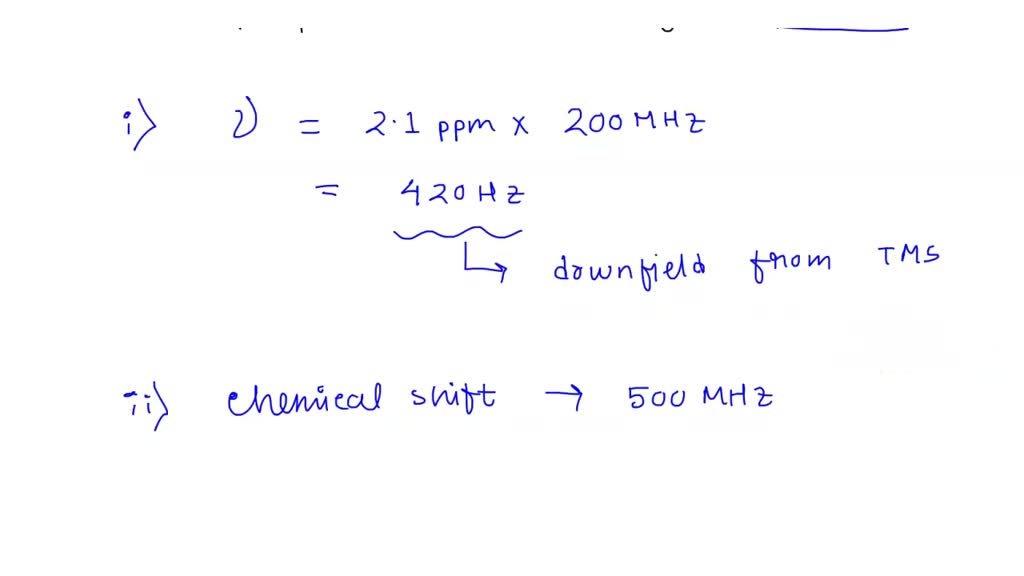 i) ν = 2.1 ppm x 200 MHz
= 420 Hz
↳ downfield from TMS
ii) chemical shift → 500 MHz